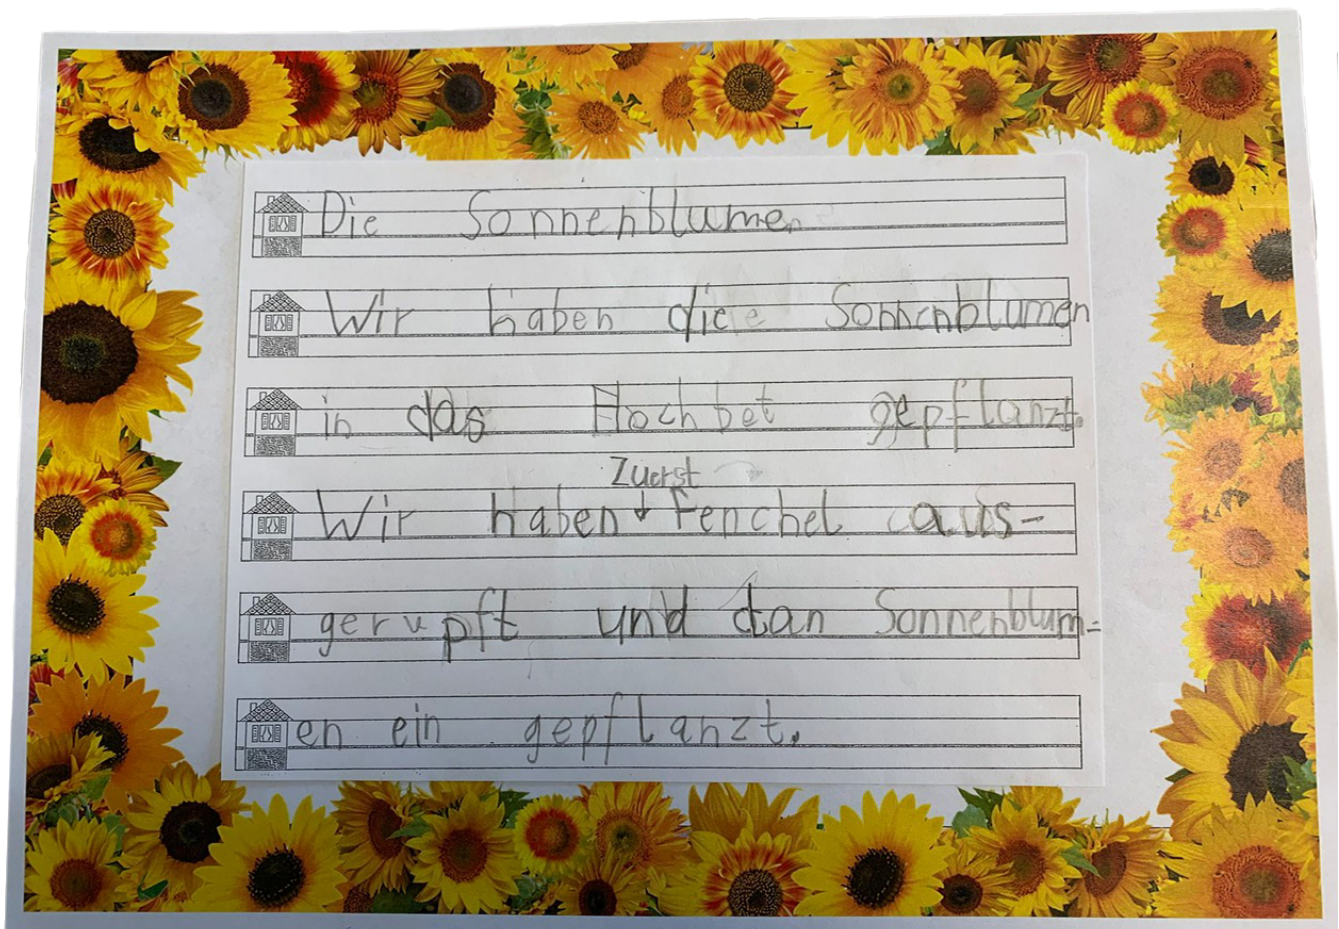 Die Sonnenblumen
Wir haben die Sonnenblumen
in das Hochbet gepflanzt.
Zuerst
Wir haben Fenchel aus-
gerupft und dan Sonnenblum-
en ein gepflanzt.